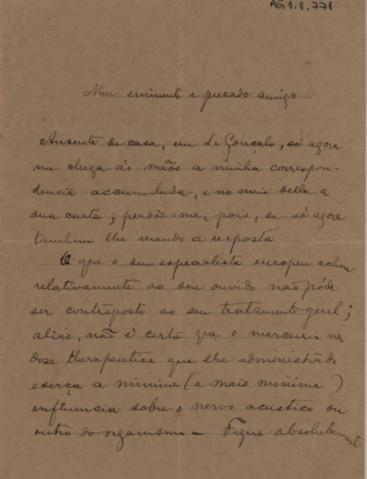 AG 1.1.771
Meu eminente e presado amigo
Ausente de casa, em S. Gonçalo, só agora
me chega ás mãos a minha correspon-
dencia accumulada, e no meio della a
sua carta; perdôe-me, pois, se só agora
tambem lhe mando a resposta
O que o seu especialista europeu achou
relativamente ao seu ouvido não póde
ser contraposto ao seu tratamento geral;
aliás, não é certo que o mercurio na
dose therapeutica que lhe administrão
exerça a minima (a mais minima)
influencia sobre o nervo acustico ou
outro do organismo — Fique absolutamente